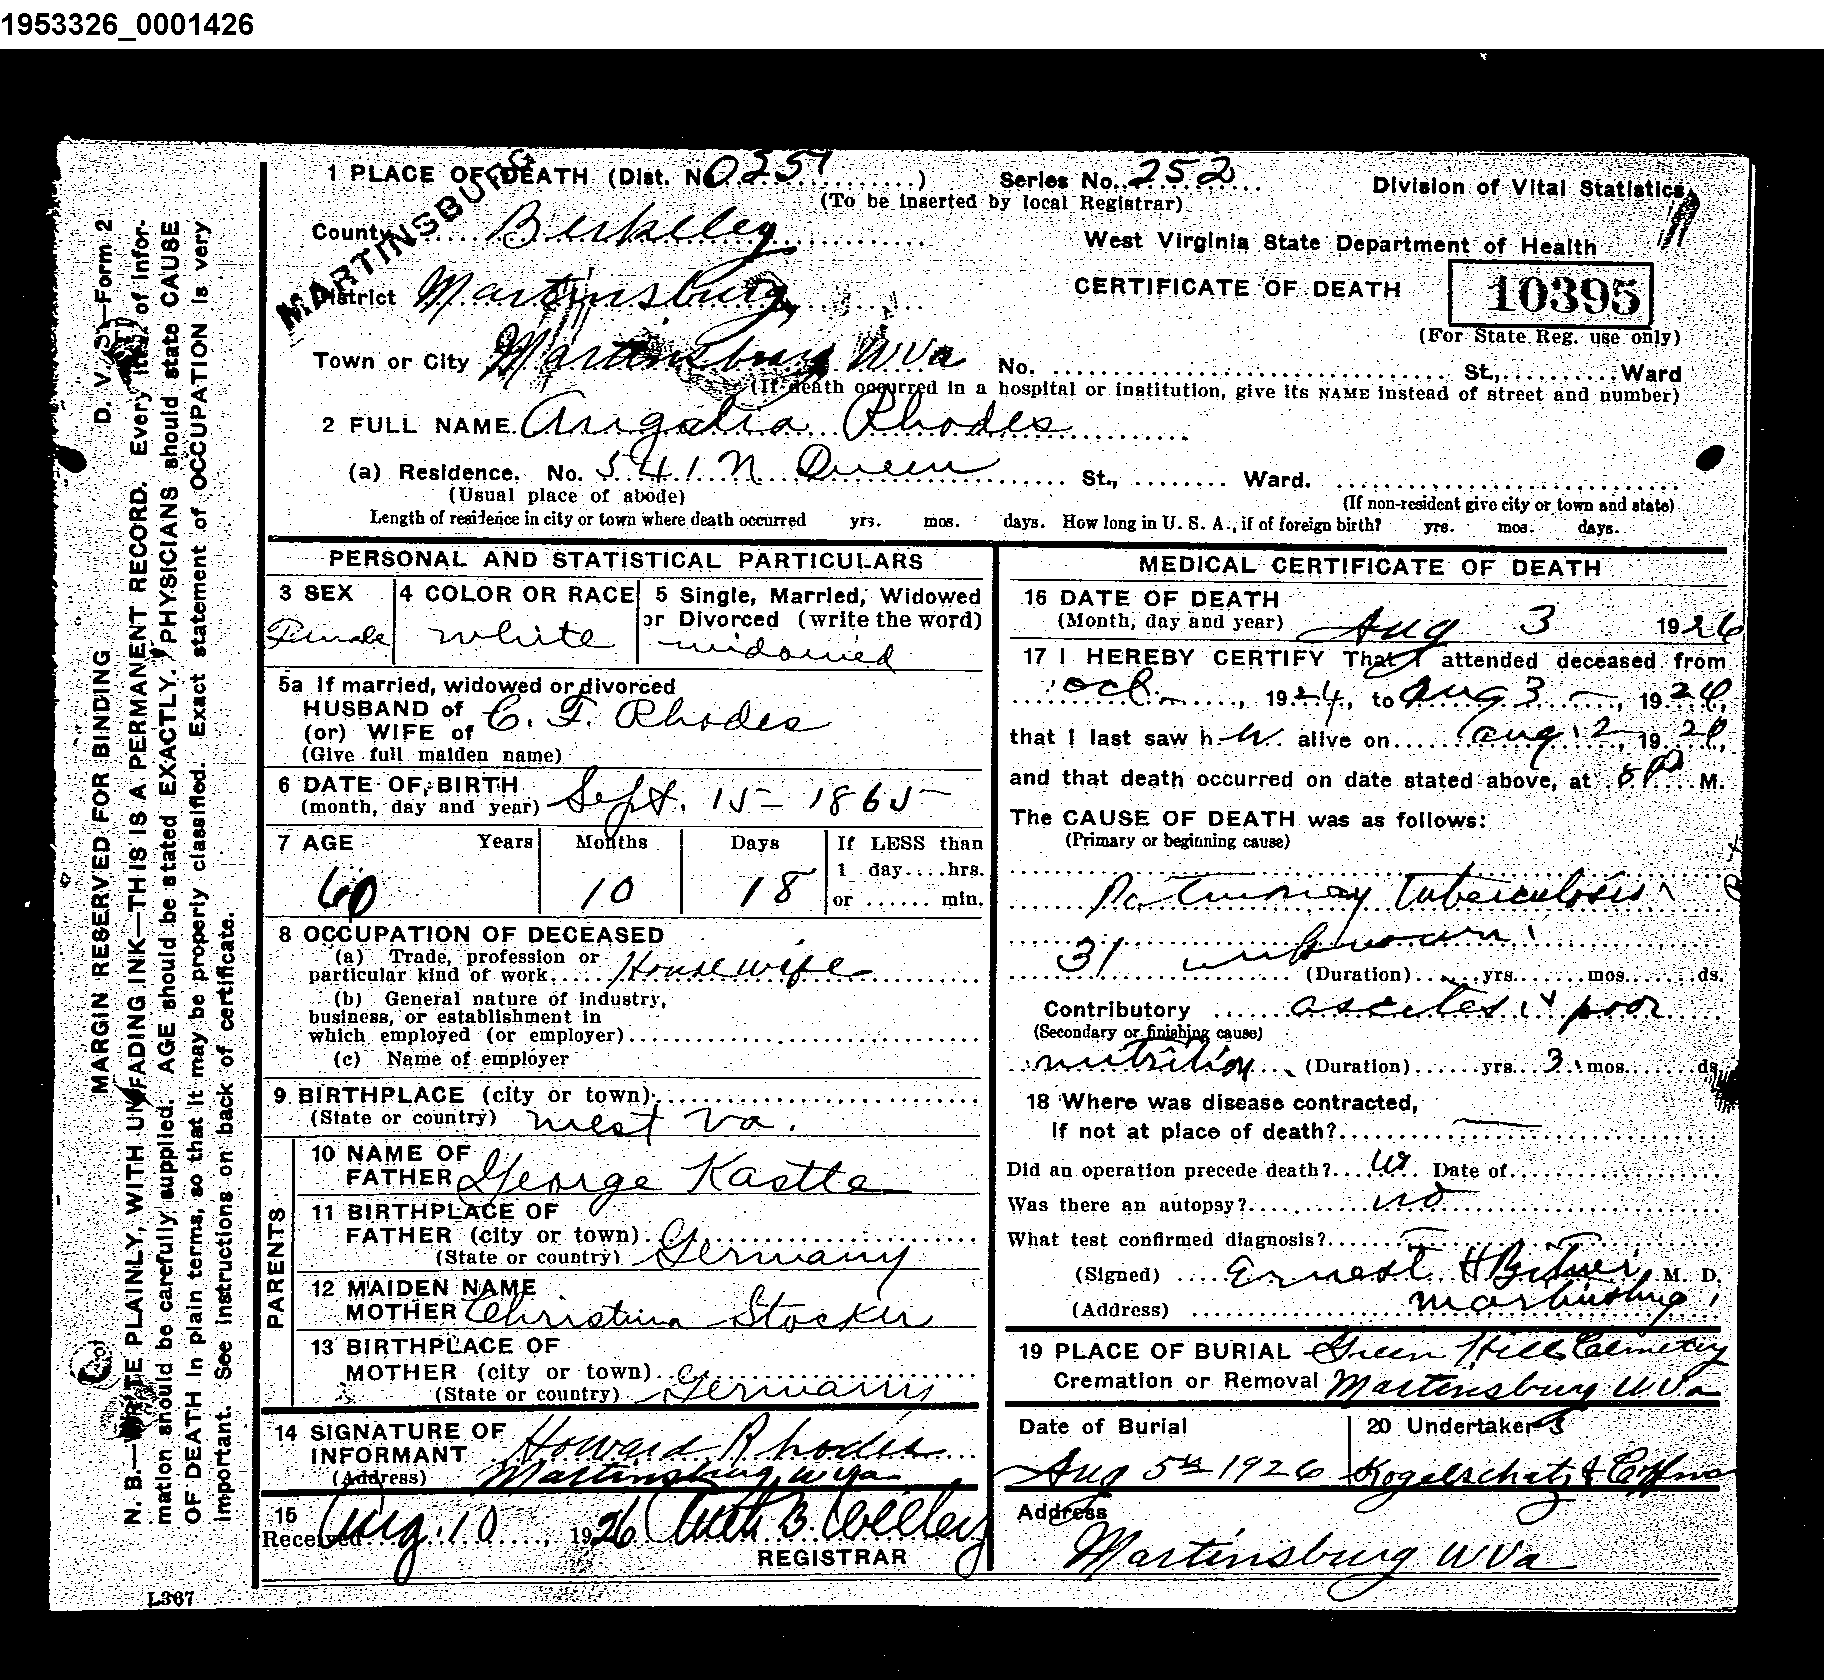 1953326_0001426
1 PLACE OF DEATH (Dist. No. 0251) Series No. 252
(To be inserted by local Registrar)
Division of Vital Statistics
MARTINSBURG
County Berkeley
West Virginia State Department of Health
District Martinsburg
CERTIFICATE OF DEATH
10395
(For State Reg. use only)
Town or City Martinsburg W Va No. St., Ward
(If death occurred in a hospital or institution, give its NAME instead of street and number)
2 FULL NAME Angalia Rhodes
(a) Residence. No. 541 N Queen St., Ward.
(Usual place of abode) (If non-resident give city or town and state)
Length of residence in city or town where death occurred yrs. mos. days. How long in U. S. A., if of foreign birth? yrs. mos. days.
PERSONAL AND STATISTICAL PARTICULARS
3 SEX 4 COLOR OR RACE 5 Single, Married, Widowed
or Divorced (write the word)
Female white widowed
5a If married, widowed or divorced
HUSBAND of
(or) WIFE of C. F. Rhodes
(Give full maiden name)
6 DATE OF BIRTH
(month, day and year) Sept. 15 - 1865
7 AGE Years Months Days If LESS than
1 day....hrs.
or ...... min.
60 10 18
8 OCCUPATION OF DECEASED
(a) Trade, profession or
particular kind of work Housewife
(b) General nature of Industry,
business, or establishment in
which employed (or employer)
(c) Name of employer
9 BIRTHPLACE (city or town)
(State or country) West Va.
PARENTS
10 NAME OF
FATHER George Kastle
11 BIRTHPLACE OF
FATHER (city or town)
(State or country) Germany
12 MAIDEN NAME
MOTHER Christina Stocker
13 BIRTHPLACE OF
MOTHER (city or town)
(State or country) Germany
14 SIGNATURE OF
INFORMANT Howard Rhodes
(Address) Martinsburg W Va
15
Received Aug. 10, 1926
REGISTRAR
MEDICAL CERTIFICATE OF DEATH
16 DATE OF DEATH
(Month, day and year) Aug 3 1926
17 I HEREBY CERTIFY That I attended deceased from
Oct. , 1924, to Aug 3 , 1926,
that I last saw h er alive on Aug 2 , 1926,
and that death occurred on date stated above, at 5 P M.
The CAUSE OF DEATH was as follows:
(Primary or beginning cause)
tuberculosis
31 unknown
(Duration) yrs. mos. ds.
Contributory ascites & poor
(Secondary or finishing cause)
nutrition (Duration) yrs. 3 mos. ds.
18 Where was disease contracted,
If not at place of death?
Did an operation precede death? no Date of
Was there an autopsy? no
What test confirmed diagnosis?
(Signed) Ernest H Bitner, M. D.
(Address) Martinsburg
19 PLACE OF BURIAL Green Hill Cemetery
Cremation or Removal Martinsburg W Va
Date of Burial 20 Undertaker
Aug 5th 1926
Address
Martinsburg W Va
D. V. S.—Form 2
MARGIN RESERVED FOR BINDING
N. B.—WRITE PLAINLY, WITH UNFADING INK—THIS IS A PERMANENT RECORD. Every item of infor-
mation should be carefully supplied. AGE should be stated EXACTLY. PHYSICIANS should state CAUSE
OF DEATH in plain terms, so that it may be properly classified. Exact statement of OCCUPATION is very
important. See instructions on back of certificate.
L367